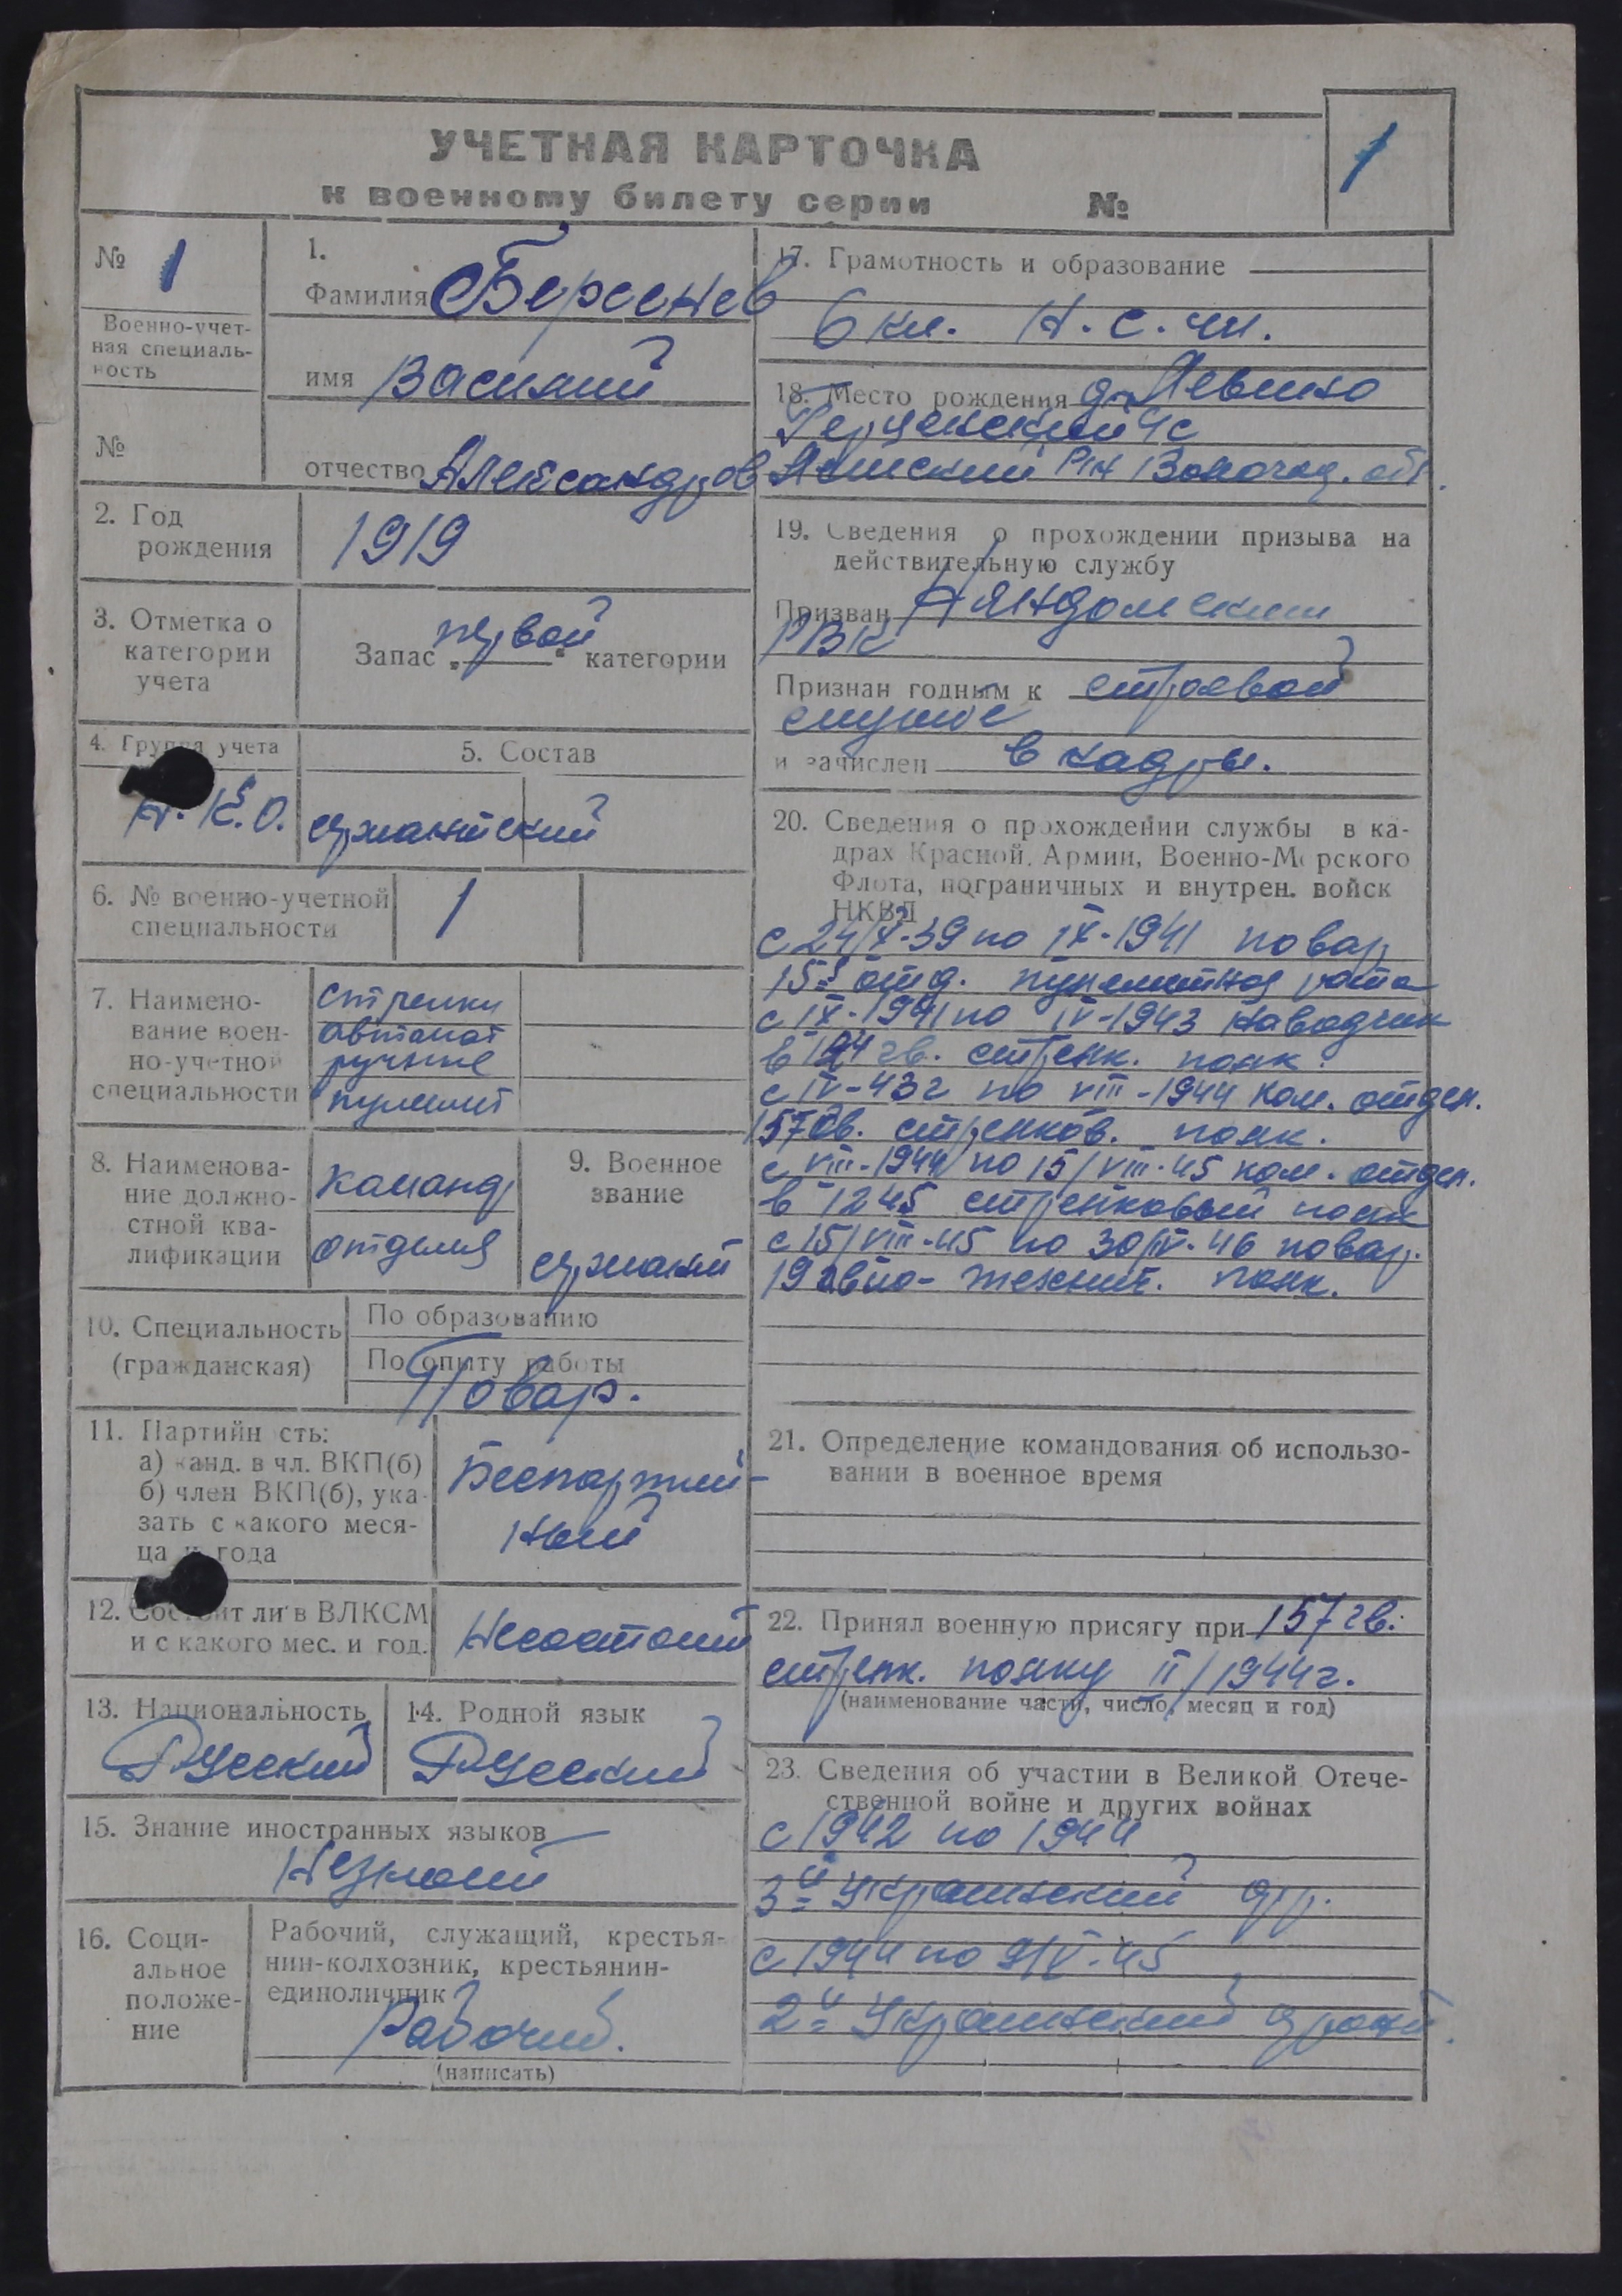 1
УЧЕТНАЯ КАРТОЧКА
к военному билету серии №
№ 1
Военно-учет-
ная специаль-
ность
№
1.
Фамилия Берсенев
имя Василий
отчество Александров
2. Год
рождения
1919
3. Отметка о
категории
учета
Запас „первой“ категории
4. Группа учета
К.О.
5. Состав
сержантский
6. № военно-учетной
специальности
1
7. Наимено-
вание воен-
но-учетной
специальности
стрелки
автомат
ручные
пулемет
8. Наименова-
ние должно-
стной ква-
лификации
команд
отделия
9. Военное
звание
сержант
10. Специальность
(гражданская)
По образованию
По опыту работы
Повар.
11. Партийн сть:
а) канд. в чл. ВКП(б)
б) член ВКП(б), ука-
зать с какого меся-
ца и года
Беспартий-
ный
12. Состоит ли в ВЛКСМ
и с какого мес. и год.
Несостоит
13. Национальность
Русский
14. Родной язык
Русский
15. Знание иностранных языков
Незнает
16. Соци-
альное
положе-
ние
Рабочий, служащий, крестья-
нин-колхозник, крестьянин-
единоличник
Рабочий.
(написать)
17. Грамотность и образование
6 кл. Н.с.ш.
18. Место рождения д. Левино
Герценский с
РН Вологод. обл.
19. Сведения о прохождении призыва на
действительную службу
Призван Няндомским
РВК
Признан годным к строевой
службе
и зачислен в кадры.
20. Сведения о прохождении службы в ка-
драх Красной Армии, Военно-Морского
Флота, пограничных и внутрен. войск
НКВД
с 24/X-39 по IX-1941 повар
отд. пулеметная рота
с IX-1941 по IV-1943 наводчик
в гв. стрелк. полк.
с IV-43г по VIII-1944 ком. отдел.
157 гв. стрелков. полк.
с VIII-1944 по 15/VIII-45 ком. отдел.
в 1245 стрелковый полк
с 15/VIII-45 по 30/IV-46 повар.
19 полк.
21. Определение командования об использо-
вании в военное время
22. Принял военную присягу при 157 гв.
стрелк. полку II/1944г.
(наименование части, число, месяц и год)
23. Сведения об участии в Великой Отече-
ственной войне и других войнах
с 1942 по 1944
3й Украинский фр.
с 1944 по 9/V-45
2й Украинский фронт.